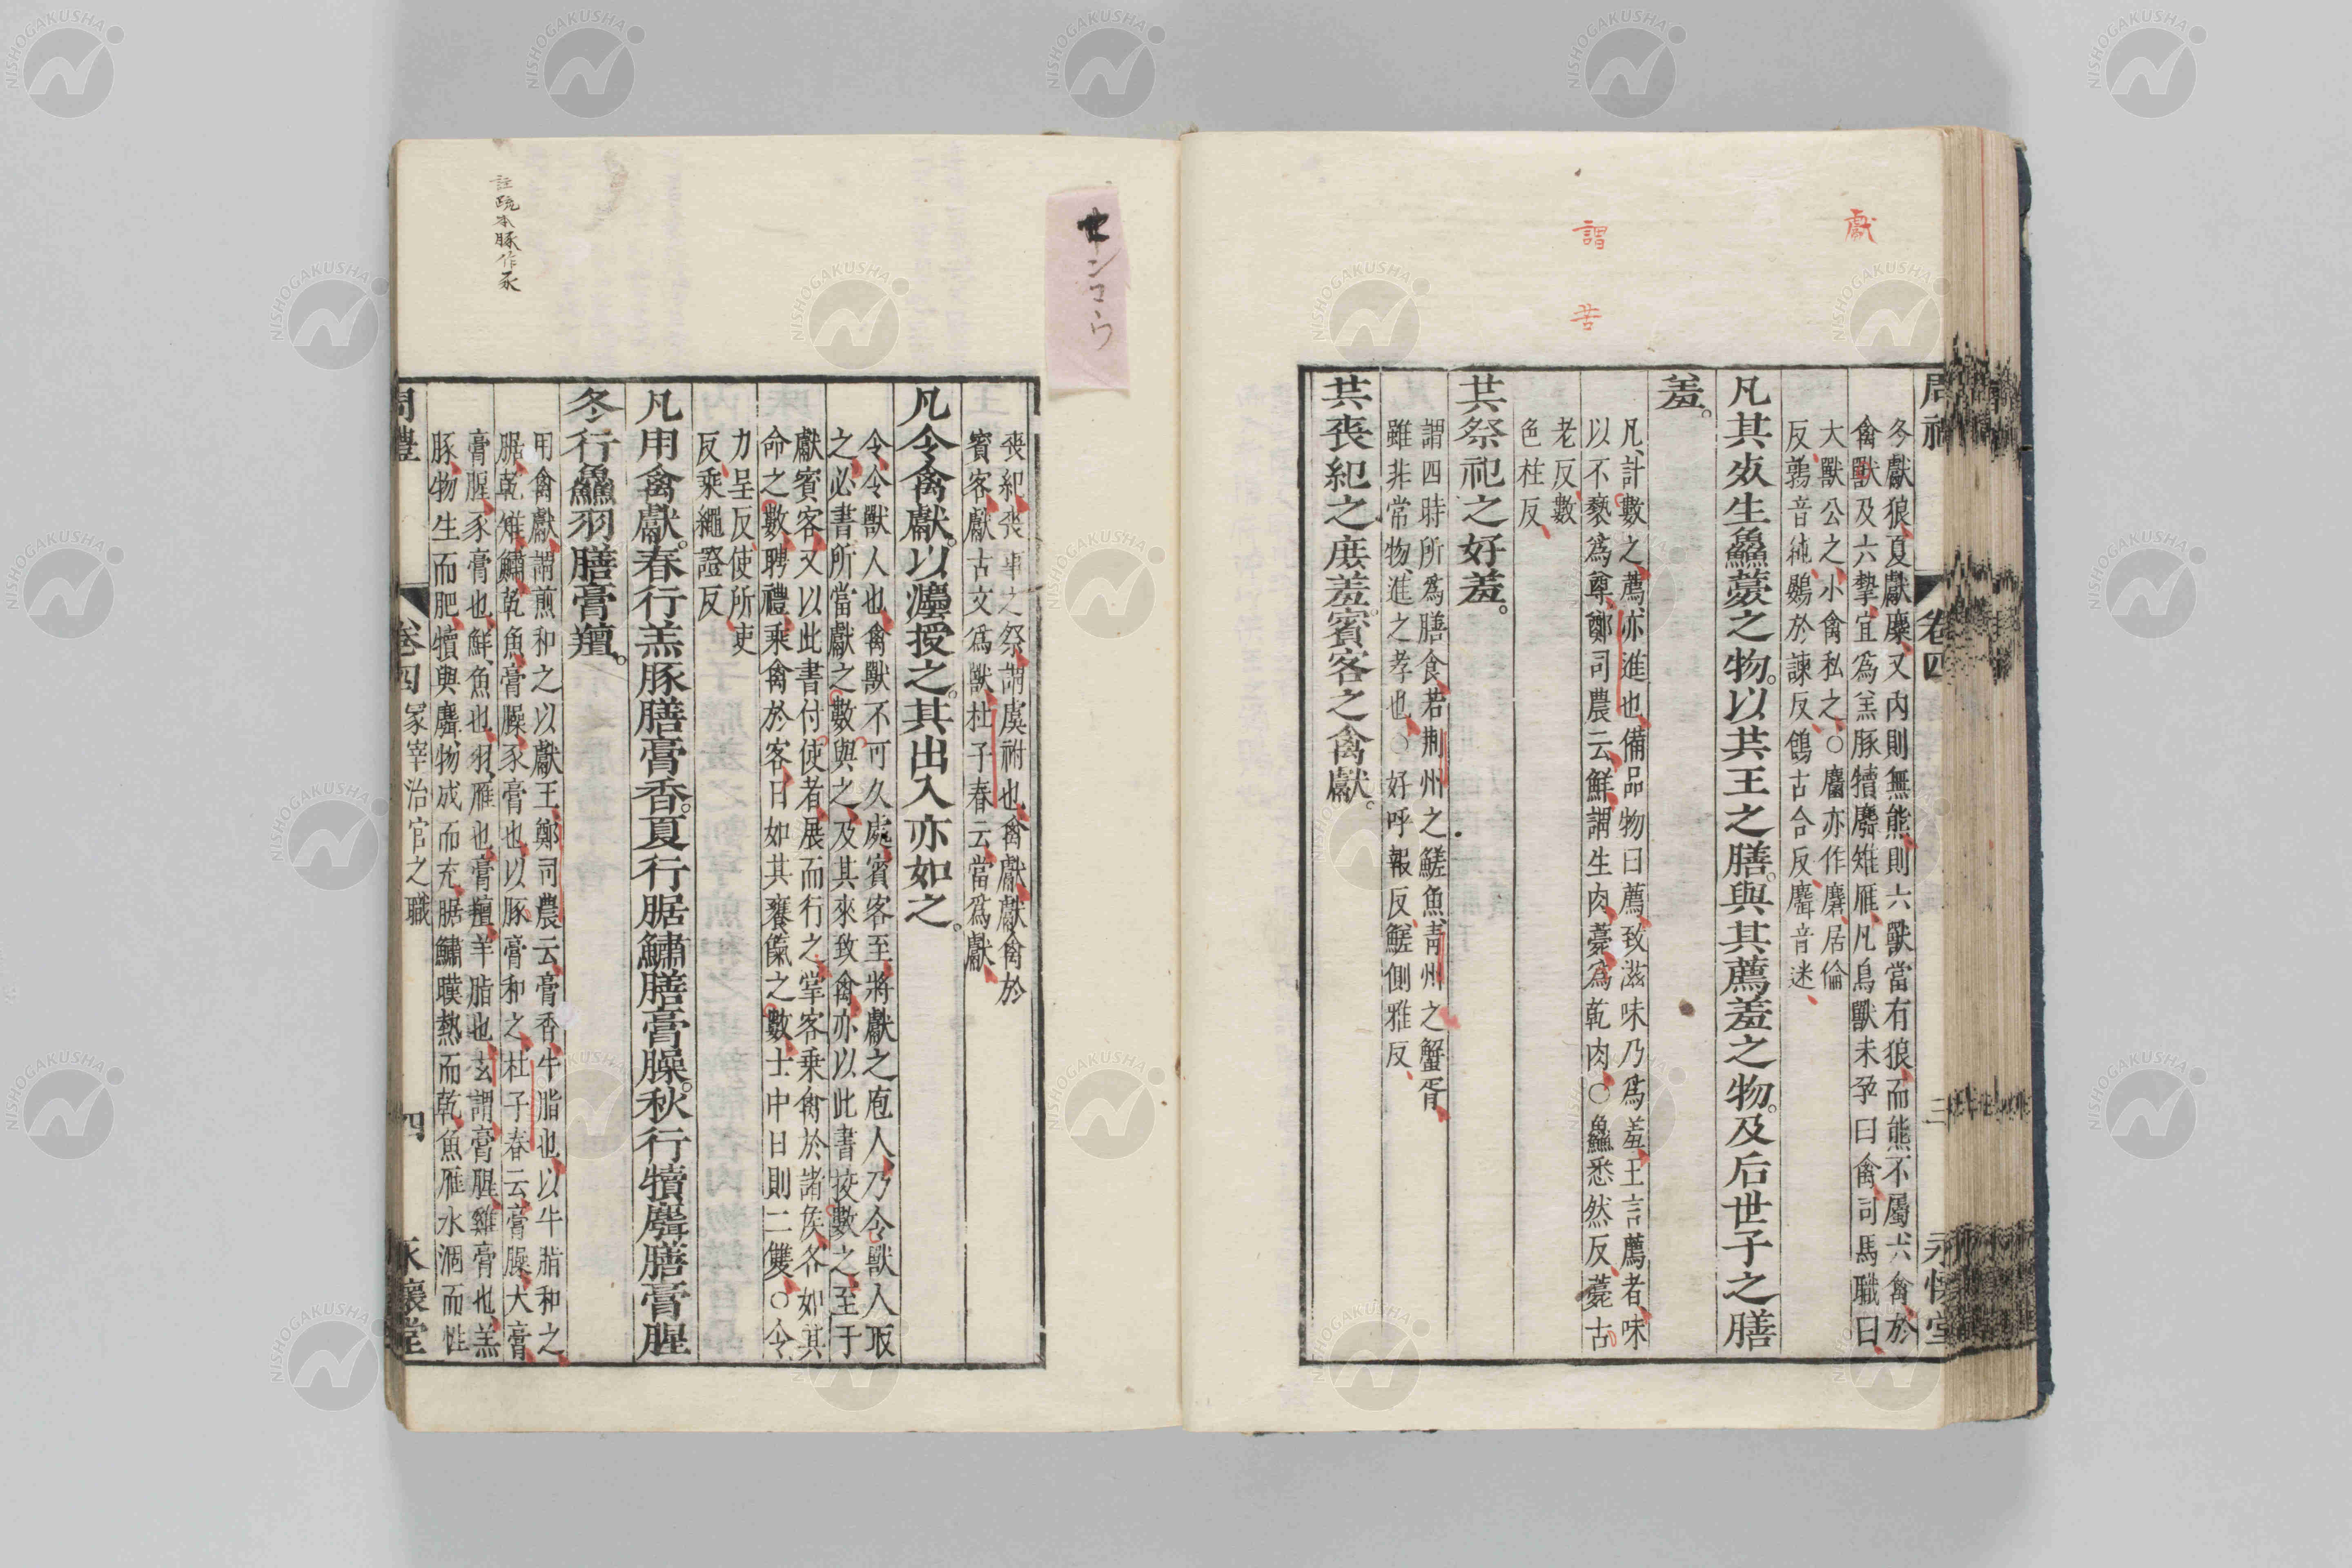 獻
謂
苦
周禮
卷四
三
永懷堂
冬獻狼夏獻麋又內則無熊則六獸當有狼而熊不屬六禽於
禽獸及六摯宜爲羔豚犢麛雉雁凡鳥獸未孕曰禽司馬職曰
大獸公之小禽私之○麕亦作麏居倫
反鶉音純鷃於諫反鴿古合反麛音迷
凡其死生鱻薧之物以共王之膳與其薦羞之物及后世子之膳
羞
凡計數之薦亦進也備品物曰薦致滋味乃爲羞王言薦者味
以不褻爲尊鄭司農云鮮謂生肉薧爲乾肉○鱻悉然反薧古
老反數
色柱反
共祭祀之好羞
謂四時所爲膳食若荆州之䱹魚青州之蟹胥
雖非常物進之孝也○好呼報反䱹側雅反
共喪紀之庶羞賓客之禽獻
センコウ
喪紀喪事之祭謂虞祔也禽獻獻禽於
賓客獻古文爲獸杜子春云當爲獻
凡令禽獻以灋授之其出入亦如之
令令獸人也禽獸不可久處賓客至將獻之庖人乃令獸人取
之必書所當獻之數與之及其來致禽亦以此書挍數之至于
獻賓客又以此書付使者展而行之掌客乗禽於諸侯各如其
命之數聘禮乗禽於客日如其饔餼之數士中日則二雙○令
力呈反使所吏
反乗繩證反
凡用禽獻春行羔豚膳膏香夏行腒鱐膳膏臊秋行犢麛膳膏腥
冬行鱻羽膳膏羶
用禽獻謂煎和之以獻王鄭司農云膏香牛脂也以牛脂和之
腒乾雉鱐乾魚膏臊豕膏也以豚膏和之杜子春云膏臊犬膏
膏腥豕膏也鮮魚也羽雁也膏羶羊脂也玄謂膏腥雞膏也羔
豚物生而肥犢與麛物成而充腒鱐暵熱而乾魚雁水涸而性
周禮
卷四
冢宰治官之職
四
永懷堂
註疏本豚作豕